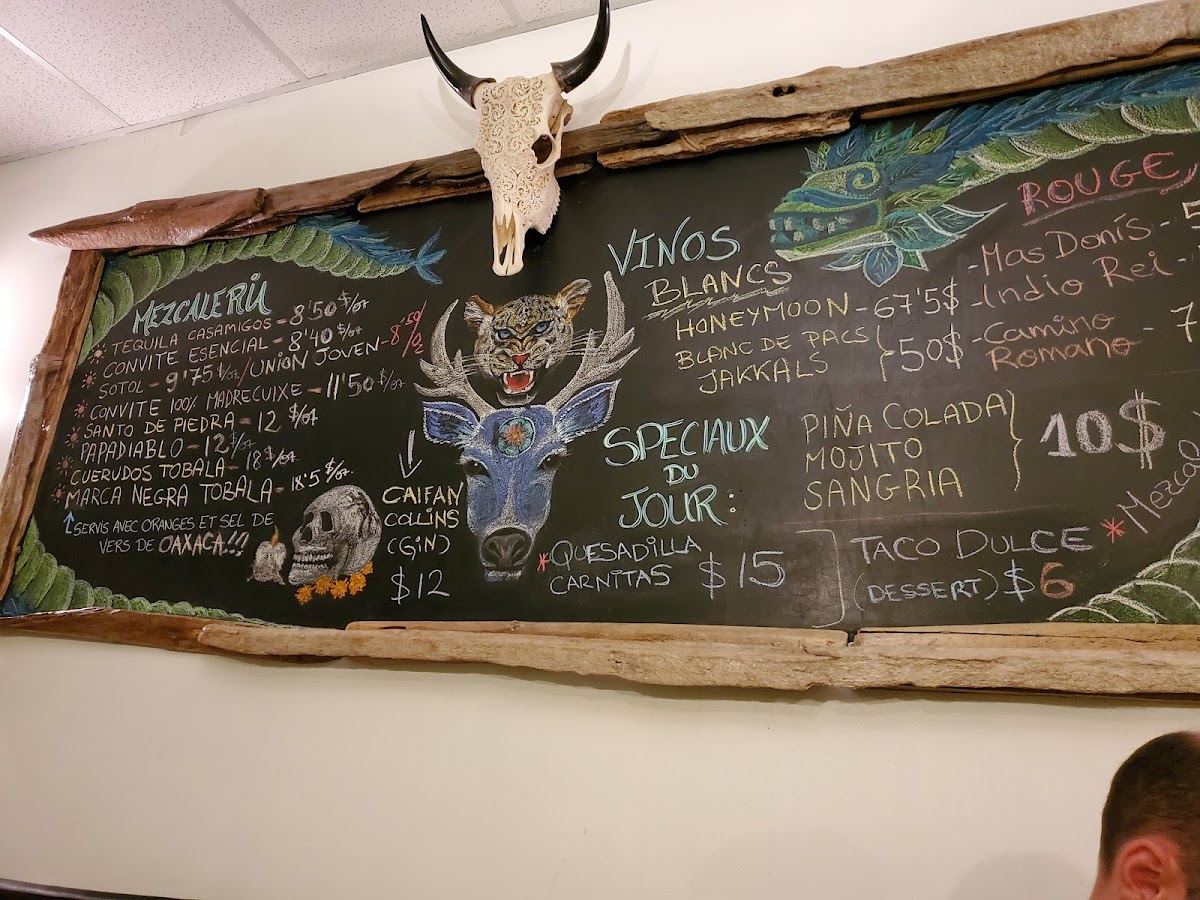 MEZCALERIA
TEQUILA CASAMIGOS - 8'50 $/oz
CONVITE ESENCIAL - 8'40 $/oz
SOTOL - 9'75 $/oz / UNION JOVEN - 8'50 $/oz
CONVITE 100% MADRECUIXE - 11'50 $/oz
SANTO DE PIEDRA - 12 $/oz
PAPADIABLO - 12 $/oz
CUERUDOS TOBALA - 18 $/oz
MARCA NEGRA TOBALA - 18'5 $/oz.
SERVIS AVEC ORANGES ET SEL DE
VERS DE OAXACA!!!
CAIFAN
COLLINS
(GIN)
$12
VINOS
BLANCS
HONEYMOON - 67'5$
BLANC DE PACS
JAKKALS
50$
ROUGE
- Mas Donís -
- Indio Rei -
- Camino
Romano -
SPECIAUX
DU
JOUR:
PIÑA COLADA
MOJITO
SANGRIA
10$
*QUESADILLA
CARNITAS $15
TACO DULCE
(DESSERT) $6
*Mezcal